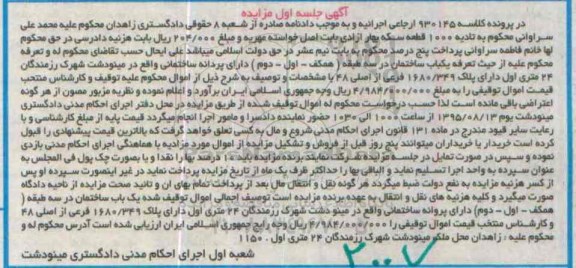 آگهی جلسه اول مزایده
در پرونده کلاسه ۹۳۰۱۴۵ ارجاعی اجرائیه و به موجب دادنامه صادره از شعبه ۸ حقوقی دادگستری زاهدان محکوم علیه محمد علی
سراوانی محکوم به تادیه ۱۰۰۰ قطعه سکه بهار آزادی بابت اصل خواسته مهریه و مبلغ ۲۰۴/۰۰۰ ریال بابت هزینه دادرسی در حق محکوم
لها خانم فاطمه سراوانی پرداخت پنج درصد محکوم به بابت نیم عشر در حق دولت اسلامی میباشد علی ایحال حسب تقاضای محکوم له و تعرفه
محکوم علیه از حیث تعرفه یکباب ساختمان در سه طبقه ( همکف - اول - دوم ) دارای پردانه ساختمانی واقع در مینودشت شهرک رزمندگان
۲۴ متری اول دارای پلاک ۱۶۸۰/۳۴۹ فرعی از اصلی ۴۸ با مشخصات و توصیف به شرح ذیل از اموال محکوم علیه توقیف و کارشناس منتخب
قیمت اموال توقیفی را به ۴/۹۸۴/۰۰۰/۰۰۰ ریال وجه جمهوری اسلامی ایران برآورد و اعلام نموده و نظریه مزبور مصون از هر گونه
اعتراضی باقی مانده است لذا حسب درخواست محکوم له اموال توقیف شده از طریق مزایده در محل دفتر اجرای احکام مدنی دادگستری
مینودشت یوم ۱۳۹۵/۰۸/۱۳ از ساعت ۱۰۰۰ الی ۱۰۳۰ حضور نماینده دادسرا و مامور اجرا انجام میگردد قیمت پایه از مبلغ کارشناسی و با
رعایت سایر قیود مندرج در ماده ۱۳۱ قانون اجرای احکام مدنی شروع و مال به کسی تعلق خواهد گرفت که بالاترین قیمت پیشنهادی را قبول
کرده است خریدار یا خریداران میتوانند پنج روز قبل از فروش و تشکیل مزایده از اموال مورد مزایده با هماهنگی اجرای احکام مدنی بازدی
نموده و سپس در صورت تمایل در جلسه مزایده شرکت نمایند برنده مزایده باید ۱۰ درصد بها را نقدا و یا بصورت چک پول فی المجلس به
عنوان سپرده به واحد اجرا تسلیم نماید و الباقی بها را حداکثر ظرف یک ماه از تاریخ مزایده پرداخت نماید در غیر اینصورت سپرده او پس
از کسر هزینه مزایده به نفع دولت ضبط میگردد هر گونه نقل و انتقال مال بعد از پرداخت تمام بهای آن و تائید صحت مزایده از ناحیه دادگاه
صورت میگیرد و کلیه هزینه های نقل و انتقال به عهده برنده مزایده است توصیف اجمالی اموال توقیف شده یک باب ساختمان در سه طبقه (
همکف - اول - دوم) دارای پروانه ساختمانی واقع در مینو دشت شهرک رزمندگان ۲۴ متری اول دارای پلاک ۱۶۸۰/۳۴۹ فرعی از اصلی ۴۸
و کارشناس منتخب قیمت اموال توقیفی را ۴/۹۸۴/۰۰۰/۰۰۰ ریال وجه رایج جمهوری اسلامی ایران ارزیابی شده است آدرس محکوم له و
محکوم علیه : زاهدان محل ملک مینودشت شهرک رزمندگان ۲۴ متری اول . ۱۱۵۰
شعبه اول اجرای احکام مدنی دادگستری مینودشت